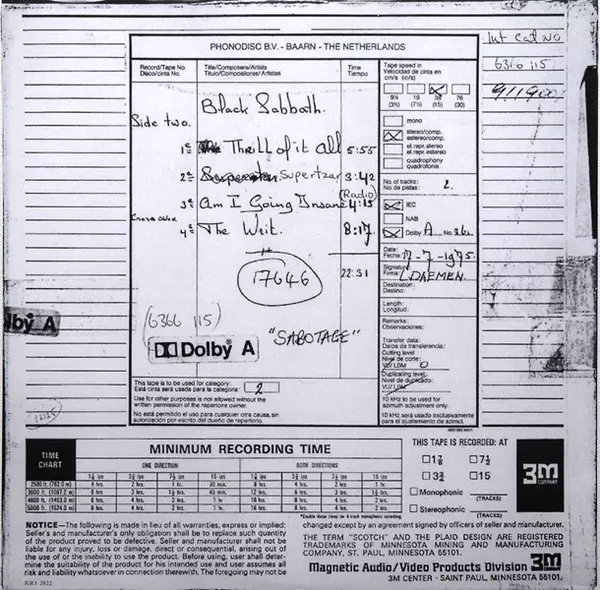 Int Cat No
6366 115
911900
PHONODISC B.V. - BAARN - THE NETHERLANDS
Record/Tape No.
Disco/cinta No.
Title/Composers/Artists
Titulo/Compositores/Artistas
Time
Tiempo
Tape speed in
Velocidad de cinta en
cm/s (in/s)
9½ 19 38 76
(3¾) (7½) (15) (30)
Black Sabbath.
Side two.
1e Thrill of it all 5:55
2e Supertzar 3:42
3e Am I Going Insane (Radio) 4:15
4e The Writ. 8:17
22:31
17646
(6366 115)
"SABOTAGE"
Dolby A
lby A
mono
stereo/comp.
estereo/comp.
el.repr.stereo
el.repr.estereo
quadrophony
quadrofonia
No. of tracks:
No. de pistas: 2.
IEC
NAB
Dolby A No. 361
Date:
Fecha: 17-7-1975
Signature
Firma: L. DAEMEN.
Destination:
Destino:
Length:
Longitud:
Remarks:
Observaciones:
Transfer data:
Datos de transferencia:
Cutting level
Nivel de corte:
VU/LBM 0
Duplicating level:
Nivel de duplicado:
VU/LBM
10 kHz to be used for
azimuth adjustment only.
10 kHz será usado exclusivamente
para el ajustamiento de azimut.
This tape is to be used for category: 2
Esta cinta será usada para la categoria:
Use for other purposes is not allowed without the
written permission of the repertoire owner.
No está permitido el uso para cualquier otra causa, sin
autorización por escrito del dueño de repertorio.
TIME
CHART
MINIMUM RECORDING TIME
ONE DIRECTION BOTH DIRECTIONS
1⅞ ips 3¾ ips 7½ ips 15 ips 1⅞ ips 3¾ ips 7½ ips 15 ips
2500 ft. (762.0 m) 4 hrs. 2 hrs. 1 hr. 30 min. 8 hrs. 4 hrs. 2 hrs. 1 hr.
3600 ft. (1097.2 m) 6 hrs. 3 hrs. 1½ hrs. 45 min. 12 hrs. 6 hrs. 3 hrs. 1½ hrs.
4800 ft. (1463.0 m) 8 hrs. 4 hrs. 2 hrs. 1 hr. 16 hrs. 8 hrs. 4 hrs. 2 hrs.
5000 ft. (1524.0 m) 8 hrs. 4 hrs. 2 hrs. 1 hr. 16 hrs. 8 hrs. 4 hrs. 2 hrs.
*Double these for 4 track monophonic recording
THIS TAPE IS RECORDED: AT
1⅞ 7½
3¾ 15
Monophonic (TRACKS)
Stereophonic (TRACKS)
3M
COMPANY
NOTICE—The following is made in lieu of all warranties, express or implied:
Seller's and manufacturer's only obligation shall be to replace such quantity
of the product proved to be defective. Neither seller nor manufacturer shall
be liable for any injury, loss or damage, direct or consequential, arising out of
the use of or the inability to use the product. Before using, user shall deter-
mine the suitability of the product for his intended use and user assumes all
risk and liability whatsoever in connection therewith. The foregoing may not be
changed except by an agreement signed by officers of seller and manufacturer.
THE TERM "SCOTCH" AND THE PLAID DESIGN ARE REGISTERED
TRADEMARKS OF MINNESOTA MINING AND MANUFACTURING
COMPANY, ST. PAUL, MINNESOTA 55101.
Magnetic Audio/Video Products Division 3M
3M CENTER · SAINT PAUL, MINNESOTA 55101,
RR1 2822